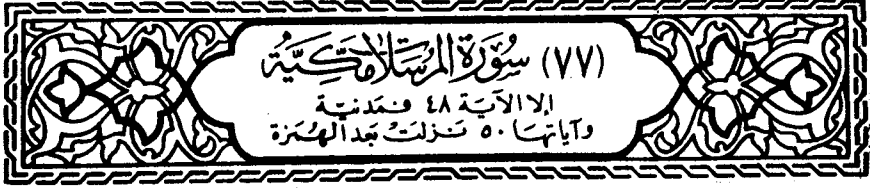 (٧٧) سُورَةُ المُرسَلَاتِ مَكِّيَّةٌ
إلا الآية ٤٨ فمدنية
وآياتها ٥٠ نزلت بعد الهمزة